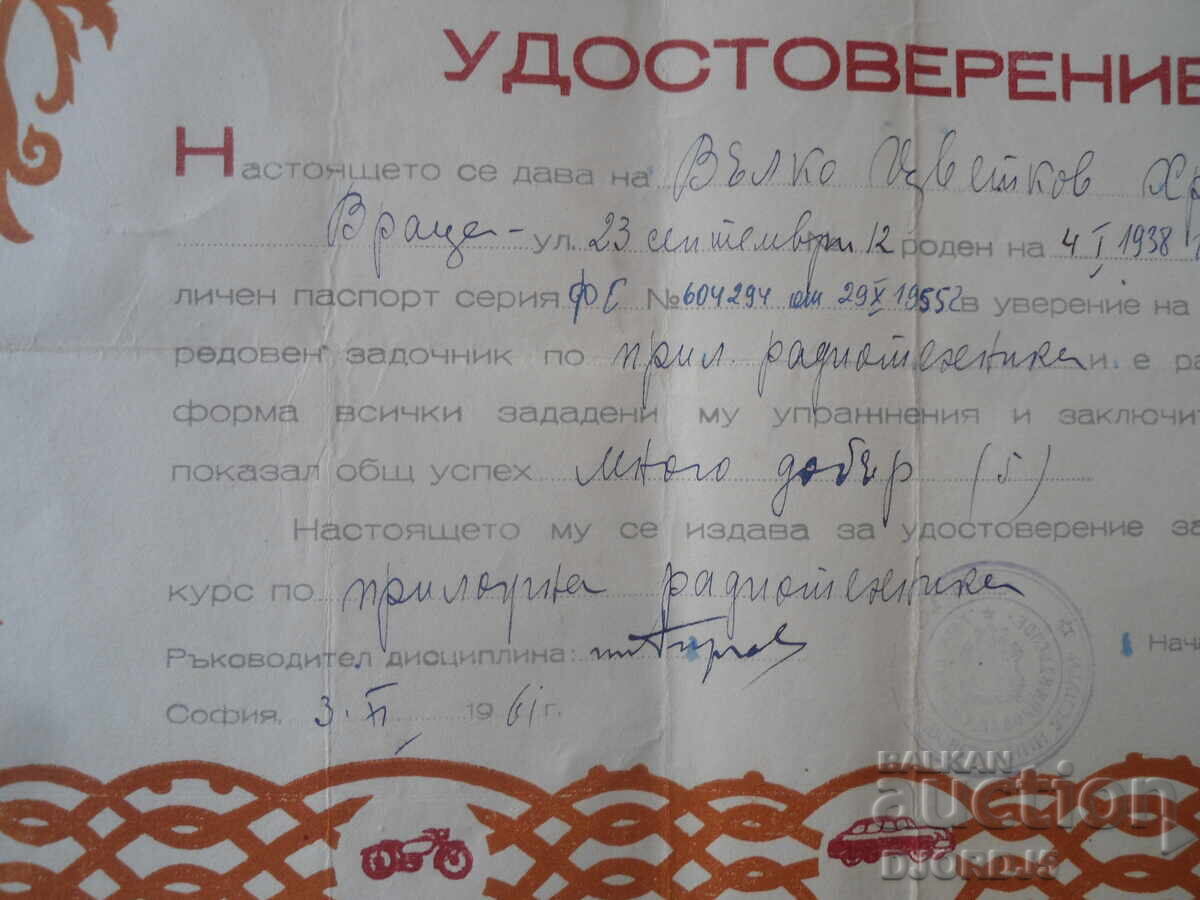 УДОСТОВЕРЕНИЕ
Настоящето се дава на Вълко Цветков Хр
Враца - ул. 23 септември 12 роден на 4 I 1938 г
личен паспорт серия ФЕ № 604294 от 29 X 1955 г в уверение на
редовен задочник по прил. радиотехника и е ра
форма всички зададени му упражнения и заключи
показал общ успех много добър (5)
Настоящето му се издава за удостоверение за
курс по приложна радиотехника
Ръководител дисциплина:
Нача
София, 3. VI 1961 г.
BALKAN
auction
DJORDJ5